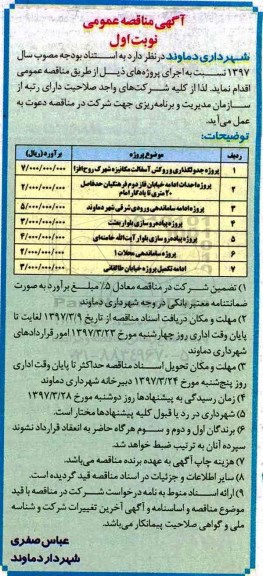 آگهی مناقصه عمومی
نوبت اول
شهرداری دماوند در نظر دارد به استناد بودجه مصوب سال
۱۳۹۷ نسبت به اجرای پروژه‌های ذیل از طریق مناقصه عمومی
اقدام نماید. لذا از کلیه شرکت‌های واجد صلاحیت دارای رتبه از
سازمان مدیریت و برنامه‌ریزی جهت شرکت در مناقصه دعوت به
عمل می‌آید.
توضیحات:
ردیف موضوع پروژه برآورد (ریال)
۱ پروژه جدولگذاری و روکش آسفالت مکانیزه شهرک روح‌افزا ۷/۰۰۰/۰۰۰/۰۰۰
۲ پروژه احداث ادامه خیابان فاز دوم فرهنگیان حدفاصل ۲۰متری تا یادگار امام ۲/۰۰۰/۰۰۰/۰۰۰
۳ پروژه ادامه ساماندهی ورودی شرقی شهر دماوند ۵/۰۰۰/۰۰۰/۰۰۰
۴ پروژه پیاده‌روسازی بلوار بعثت ۳/۰۰۰/۰۰۰/۰۰۰
۵ پروژه پیاده‌روسازی بلوار آیت‌الله خامنه‌ای ۴/۰۰۰/۰۰۰/۰۰۰
۶ پروژه ساماندهی محلات ۱ ۲/۰۰۰/۰۰۰/۰۰۰
۷ ادامه تکمیل پروژه خیابان طالقانی ۳/۰۰۰/۰۰۰/۰۰۰
۱) تضمین شرکت در مناقصه معادل ۵٪ مبلغ برآورد به صورت
ضمانتنامه معتبر بانکی در وجه شهرداری دماوند
۲) مهلت و مکان دریافت اسناد مناقصه از تاریخ ۱۳۹۷/۳/۹ لغایت تا
پایان وقت اداری روز چهارشنبه مورخ ۱۳۹۷/۳/۲۳ امور قراردادهای
شهرداری دماوند
۳) مهلت و مکان تحویل اسناد مناقصه حداکثر تا پایان وقت اداری
روز پنج‌شنبه مورخ ۱۳۹۷/۳/۲۴ دبیرخانه شهرداری دماوند
۴) زمان رسیدگی به پیشنهادها روز دوشنبه مورخ ۱۳۹۷/۳/۲۸
۵) شهرداری در رد یا قبول کلیه پیشنهادها مختار است.
۶) برندگان اول و دوم و سوم هرگاه حاضر به انعقاد قرارداد نشوند
سپرده آنان به ترتیب ضبط خواهد شد.
۷) هزینه چاپ آگهی به عهده برنده مناقصه می‌باشد.
۸) سایر اطلاعات و جزئیات در اسناد مناقصه قید گردیده است.
۹) ارائه اسناد منوط به نامه درخواست شرکت در مناقصه با قید
موضوع مناقصه و اساسنامه و آگهی آخرین تغییرات شرکت و شناسه
ملی و گواهی صلاحیت پیمانکار می‌باشد.
عباس صفری
شهردار دماوند